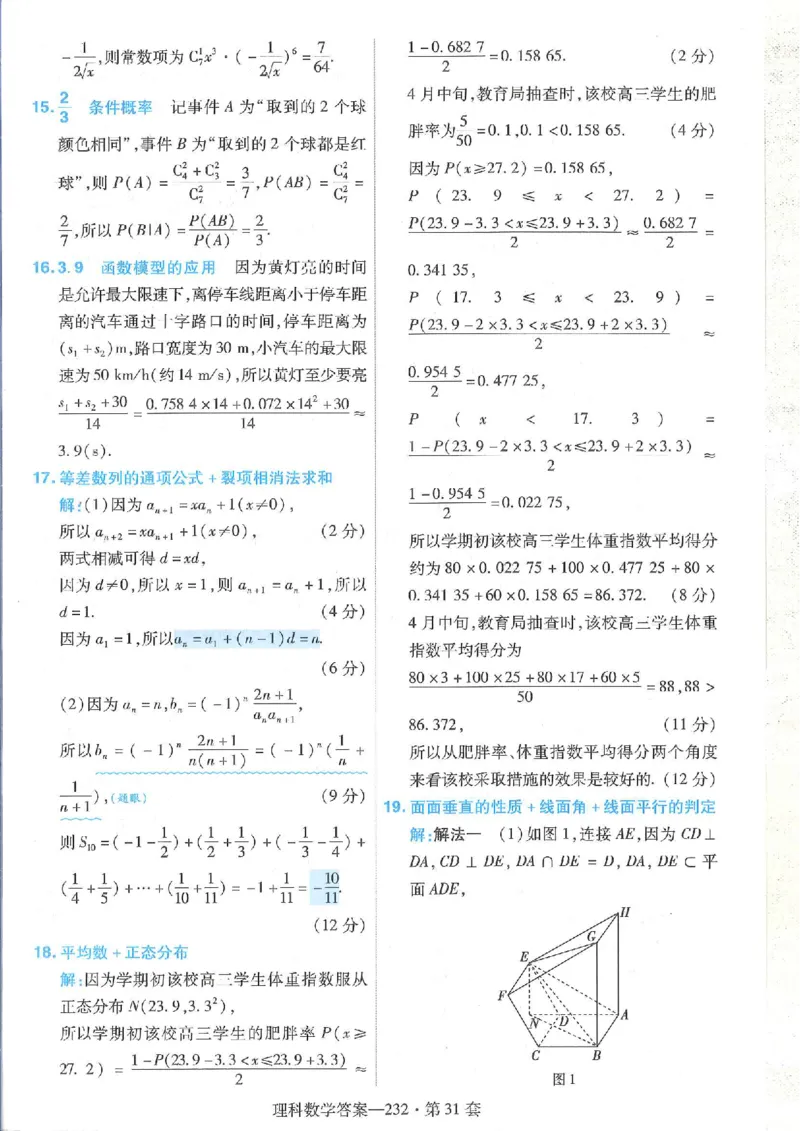 -1/(2√x),则常数项为 C₇¹x³·(-1/(2√x))⁶=7/64.
15. 2/3 条件概率 记事件 A 为“取到的 2 个球
颜色相同”,事件 B 为“取到的 2 个球都是红
球”,则 P(A)=(C₄²+C₃²)/C₇²=3/7,P(AB)=C₄²/C₇²=
2/7,所以 P(B|A)=P(AB)/P(A)=2/3.
16. 3.9 函数模型的应用 因为黄灯亮的时间
是允许最大限速下,离停车线距离小于停车距
离的汽车通过十字路口的时间,停车距离为
(s₁+s₂)m,路口宽度为 30 m,小汽车的最大限
速为 50 km/h(约 14 m/s),所以黄灯至少要亮
(s₁+s₂+30)/14=(0.758 4×14+0.072×14²+30)/14≈
3.9(s).
17. 等差数列的通项公式+裂项相消法求和
解:(1)因为 aₙ₊₁=xaₙ+1(x≠0),
所以 aₙ₊₂=xaₙ₊₁+1(x≠0), (2 分)
两式相减可得 d=xd,
因为 d≠0,所以 x=1,则 aₙ₊₁=aₙ+1,所以
d=1. (4 分)
因为 a₁=1,所以aₙ=a₁+(n-1)d=n.
(6 分)
(2)因为 aₙ=n,bₙ=(-1)ⁿ(2n+1)/(aₙaₙ₊₁),
所以bₙ=(-1)ⁿ(2n+1)/(n(n+1))=(-1)ⁿ(1/n+
1/(n+1)),(题眼) (9 分)
则 S₁₀=(-1-1/2)+(1/2+1/3)+(-1/3-1/4)+
(1/4+1/5)+…+(1/10+1/11)=-1+1/11=-10/11.
(12 分)
18. 平均数+正态分布
解:因为学期初该校高三学生体重指数服从
正态分布 N(23.9,3.3²),
所以学期初该校高三学生的肥胖率 P(x≥
27.2)=(1-P(23.9-3.3<x≤23.9+3.3))/2≈
(1-0.682 7)/2=0.158 65. (2 分)
4 月中旬,教育局抽查时,该校高三学生的肥
胖率为5/50=0.1,0.1<0.158 65. (4 分)
因为 P(x≥27.2)=0.158 65,
P(23.9≤x<27.2)=
P(23.9-3.3<x≤23.9+3.3)/2≈0.682 7/2=
0.341 35,
P(17.3≤x<23.9)=
P(23.9-2×3.3<x≤23.9+2×3.3)/2≈
0.954 5/2=0.477 25,
P(x<17.3)=
(1-P(23.9-2×3.3<x≤23.9+2×3.3))/2≈
(1-0.954 5)/2=0.022 75,
所以学期初该校高三学生体重指数平均得分
约为 80×0.022 75+100×0.477 25+80×
0.341 35+60×0.158 65=86.372. (8 分)
4 月中旬,教育局抽查时,该校高三学生体重
指数平均得分为
(80×3+100×25+80×17+60×5)/50=88,88>
86.372, (11 分)
所以从肥胖率、体重指数平均得分两个角度
来看该校采取措施的效果是较好的. (12 分)
19. 面面垂直的性质+线面角+线面平行的判定
解:解法一 (1)如图 1,连接 AE,因为 CD⊥
DA,CD⊥DE,DA∩DE=D,DA,DE⊂平
面 ADE,
H
G
E
F
N
D
A
C
B
图 1
理科数学答案—232·第 31 套